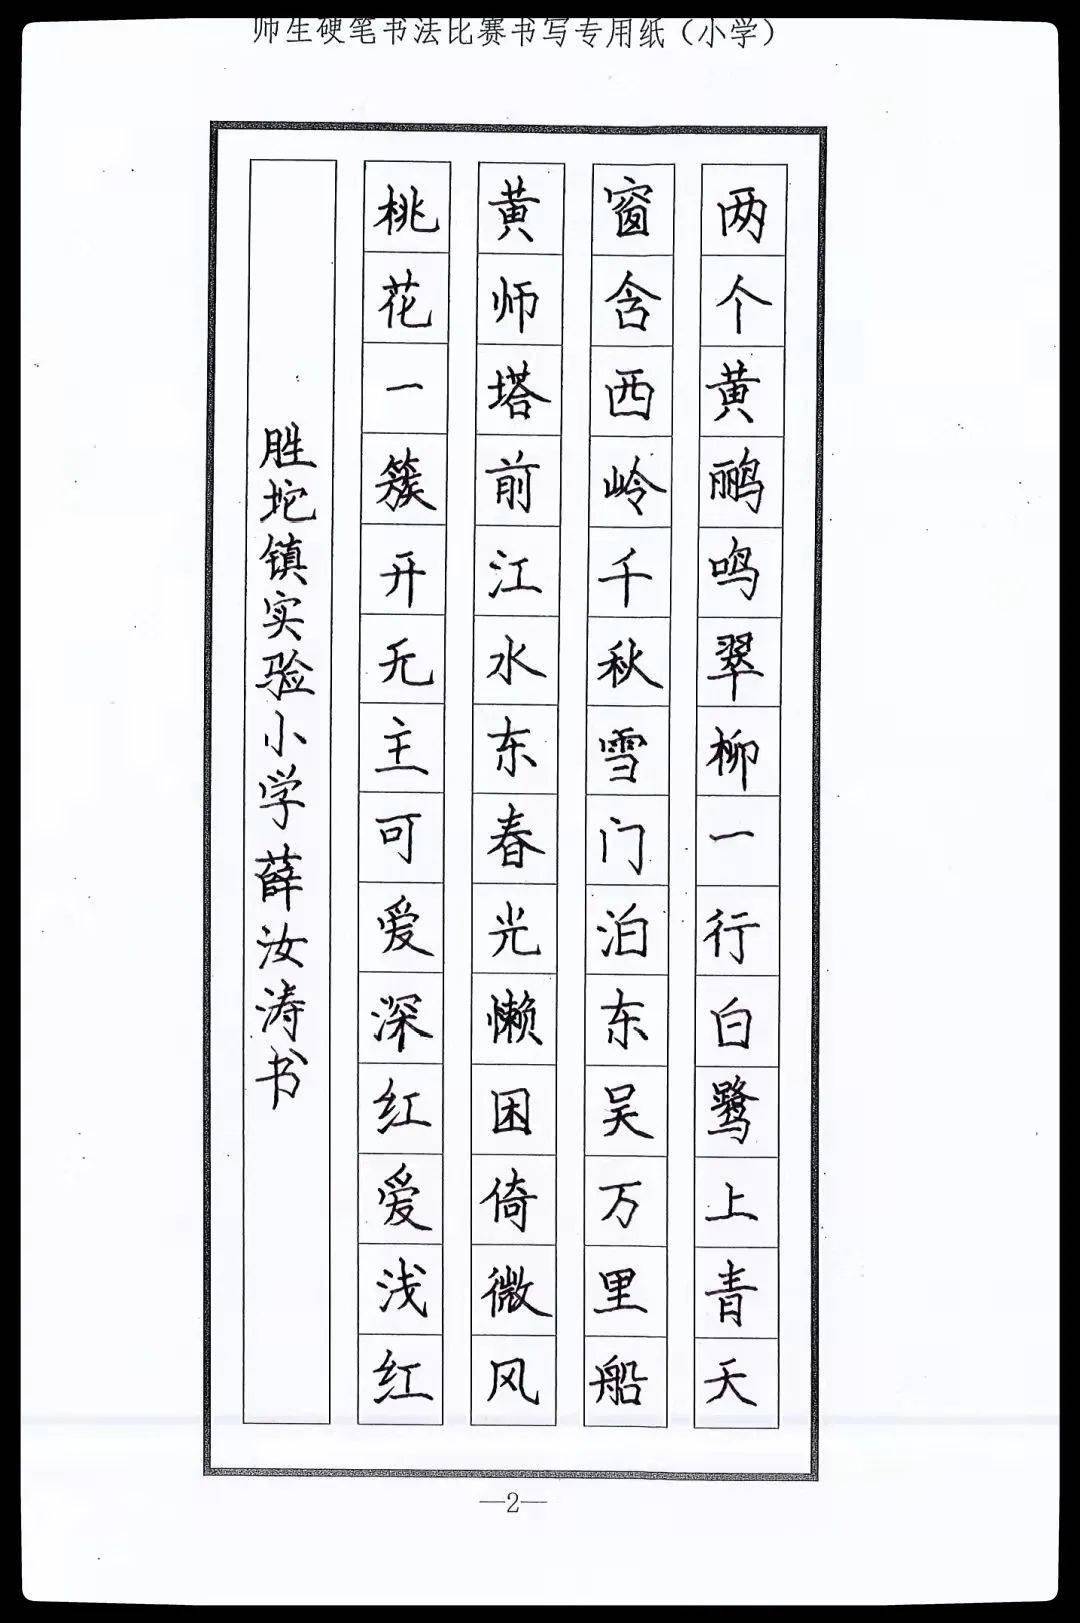 师生硬笔书法比赛书写专用纸（小学）
两个黄鹂鸣翠柳一行白鹭上青天
窗含西岭千秋雪门泊东吴万里船
黄师塔前江水东春光懒困倚微风
桃花一簇开无主可爱深红爱浅红
胜坨镇实验小学薛汝涛书
—2—